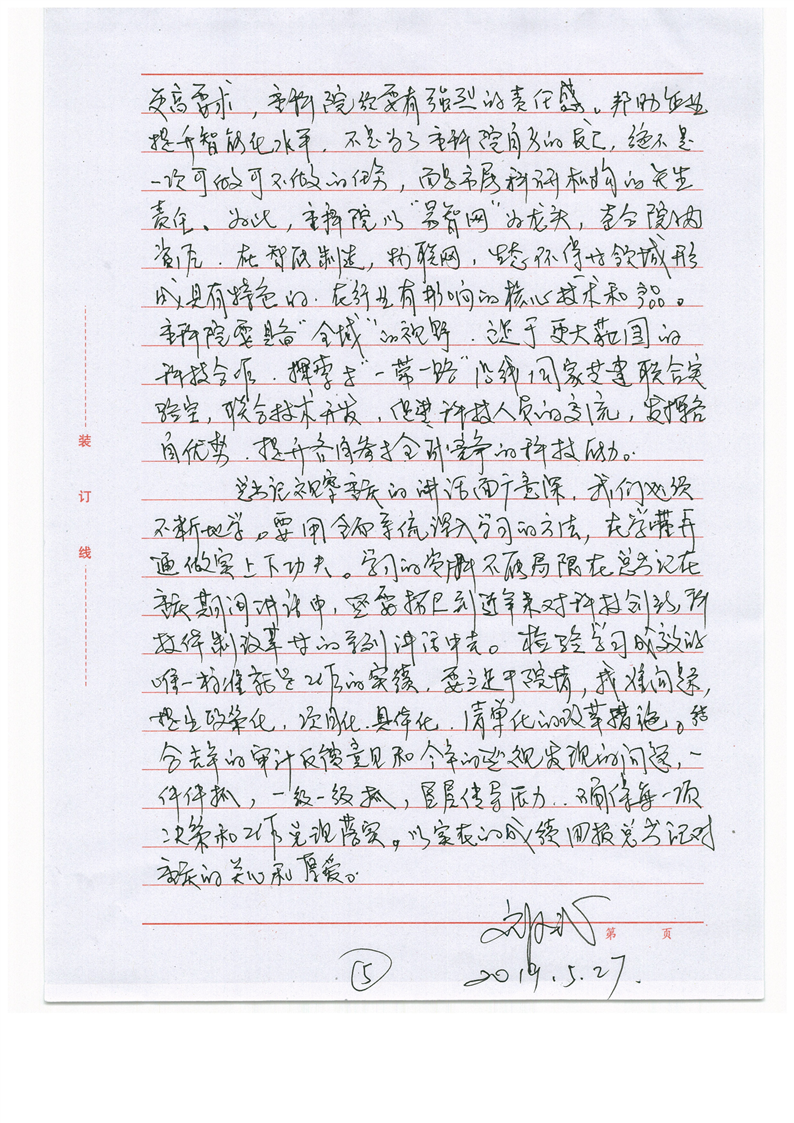 更高要求，重科院须要有强烈的责任感。帮助企业
提升智能化水平，不是为了重科院自身的，绝不是
一次可做可不做的任务，而是市属科研机构的天生
责任。为此，重科院以“易智网”为龙头，整合院内
资源，在智能制造，物联网，生态环保等领域形
成具有特色的，在行业有影响的核心技术和产品。
重科院要具备“全域”的视野，立足于更大范围的
科技合作，探索与“一带一路”沿线国家共建联合实
验室，联合技术开发，促进科技人员的交流，发挥各
自优势，提升各自参与全球竞争的科技能力。
总书记视察重庆的讲话面广意深，我们必须
不断地学。要用全面系统深入学习的方法，在学懂弄
通做实上下功夫。学习的资料不能局限在总书记在
重庆期间讲话中，还要拓展到近年来对科技创新，科
技体制改革等的系列讲话中去。检验学习成效的
唯一标准就是工作的实绩，要立足于院情，找准问题，
提出政策化，项目化，具体化，清单化的改革措施。结
合去年的审计反馈意见和今年的巡视发现的问题，一
件件抓，一级一级抓，层层传导压力，确保每一项
决策和工作兑现落实。以实在的成绩回报总书记对
重庆的关心和厚爱。
2019.5.27.
第 页
5
装
订
线